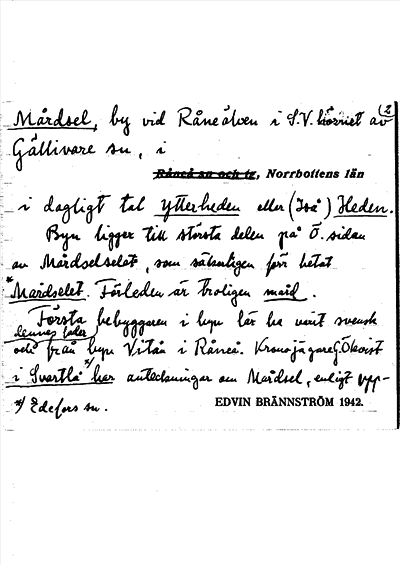 (2
Mårdsel, by vid Råneälven i S.V. hörnet av
Gällivare sn, i
Råneå sn och tg, Norrbottens län
i dagligt tal Ytterheden eller (Iså) Heden.
Byn ligger till största delen på Ö. sidan
av Mårdselselet, som sålunda förr hetat
*Mardselet. Förleden är troligen mård.
Första bebyggaren i byn lär ha varit svensk
dennes fader
och från byn Vitån i Råneå. Kronojägare G. Ökvist
i Svartlå x) har anteckningar om Mårdsel, enligt upp-
x) Edefors sn.
EDVIN BRÄNNSTRÖM 1942.